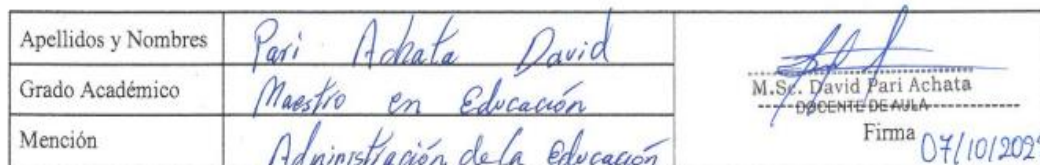 Apellidos y Nombres Pari Achata David
Grado Académico Maestro en Educación
Mención Administración de la Educación
M.Sc. David Pari Achata
DOCENTE DE AULA
Firma 07/10/202